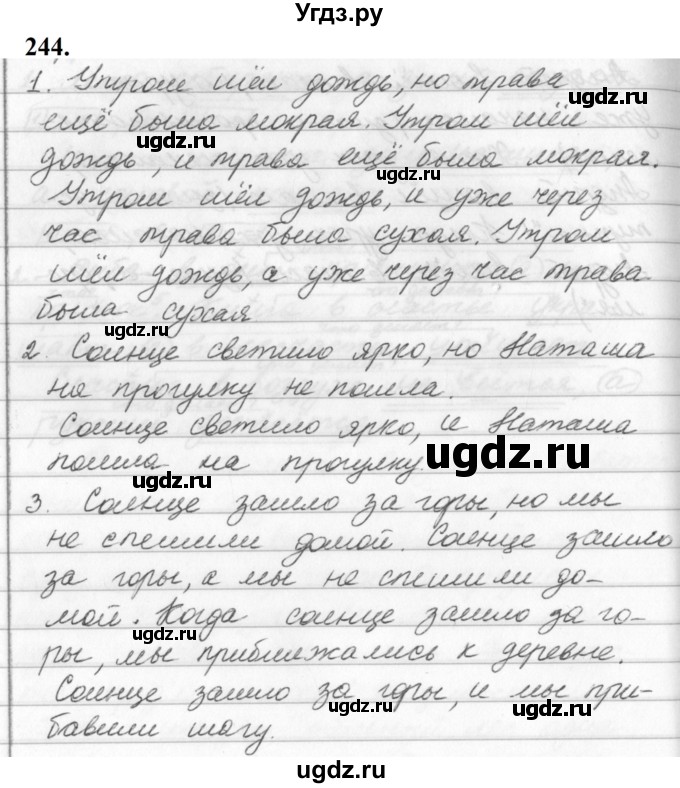 Угдз.ру
244.
1. Утром шёл дождь, но трава
ещё была мокрая. Утром шёл
ugdz.ru ugdz.ru
дождь, и трава ещё была мокрая.
Утром шёл дождь, и уже через
час трава была сухая. Утром
шёл дождь, а уже через час трава
была сухая
ugdz.ru ugdz.ru
2. Солнце светило ярко, но Наташа
на прогулку не пошла.
Солнце светило ярко, и Наташа
пошла на прогулку.
ugdz.ru ugdz.ru
3. Солнце зашло за горы, но мы
не спешили домой. Солнце зашло
за горы, а мы не спешили до-
мой. Когда солнце зашло за го-
ugdz.ru ugdz.ru
ры, мы приближались к деревне.
Солнце зашло за горы, и мы при-
бавили шагу.
ugdz.ru ugdz.ru
ugdz.ru